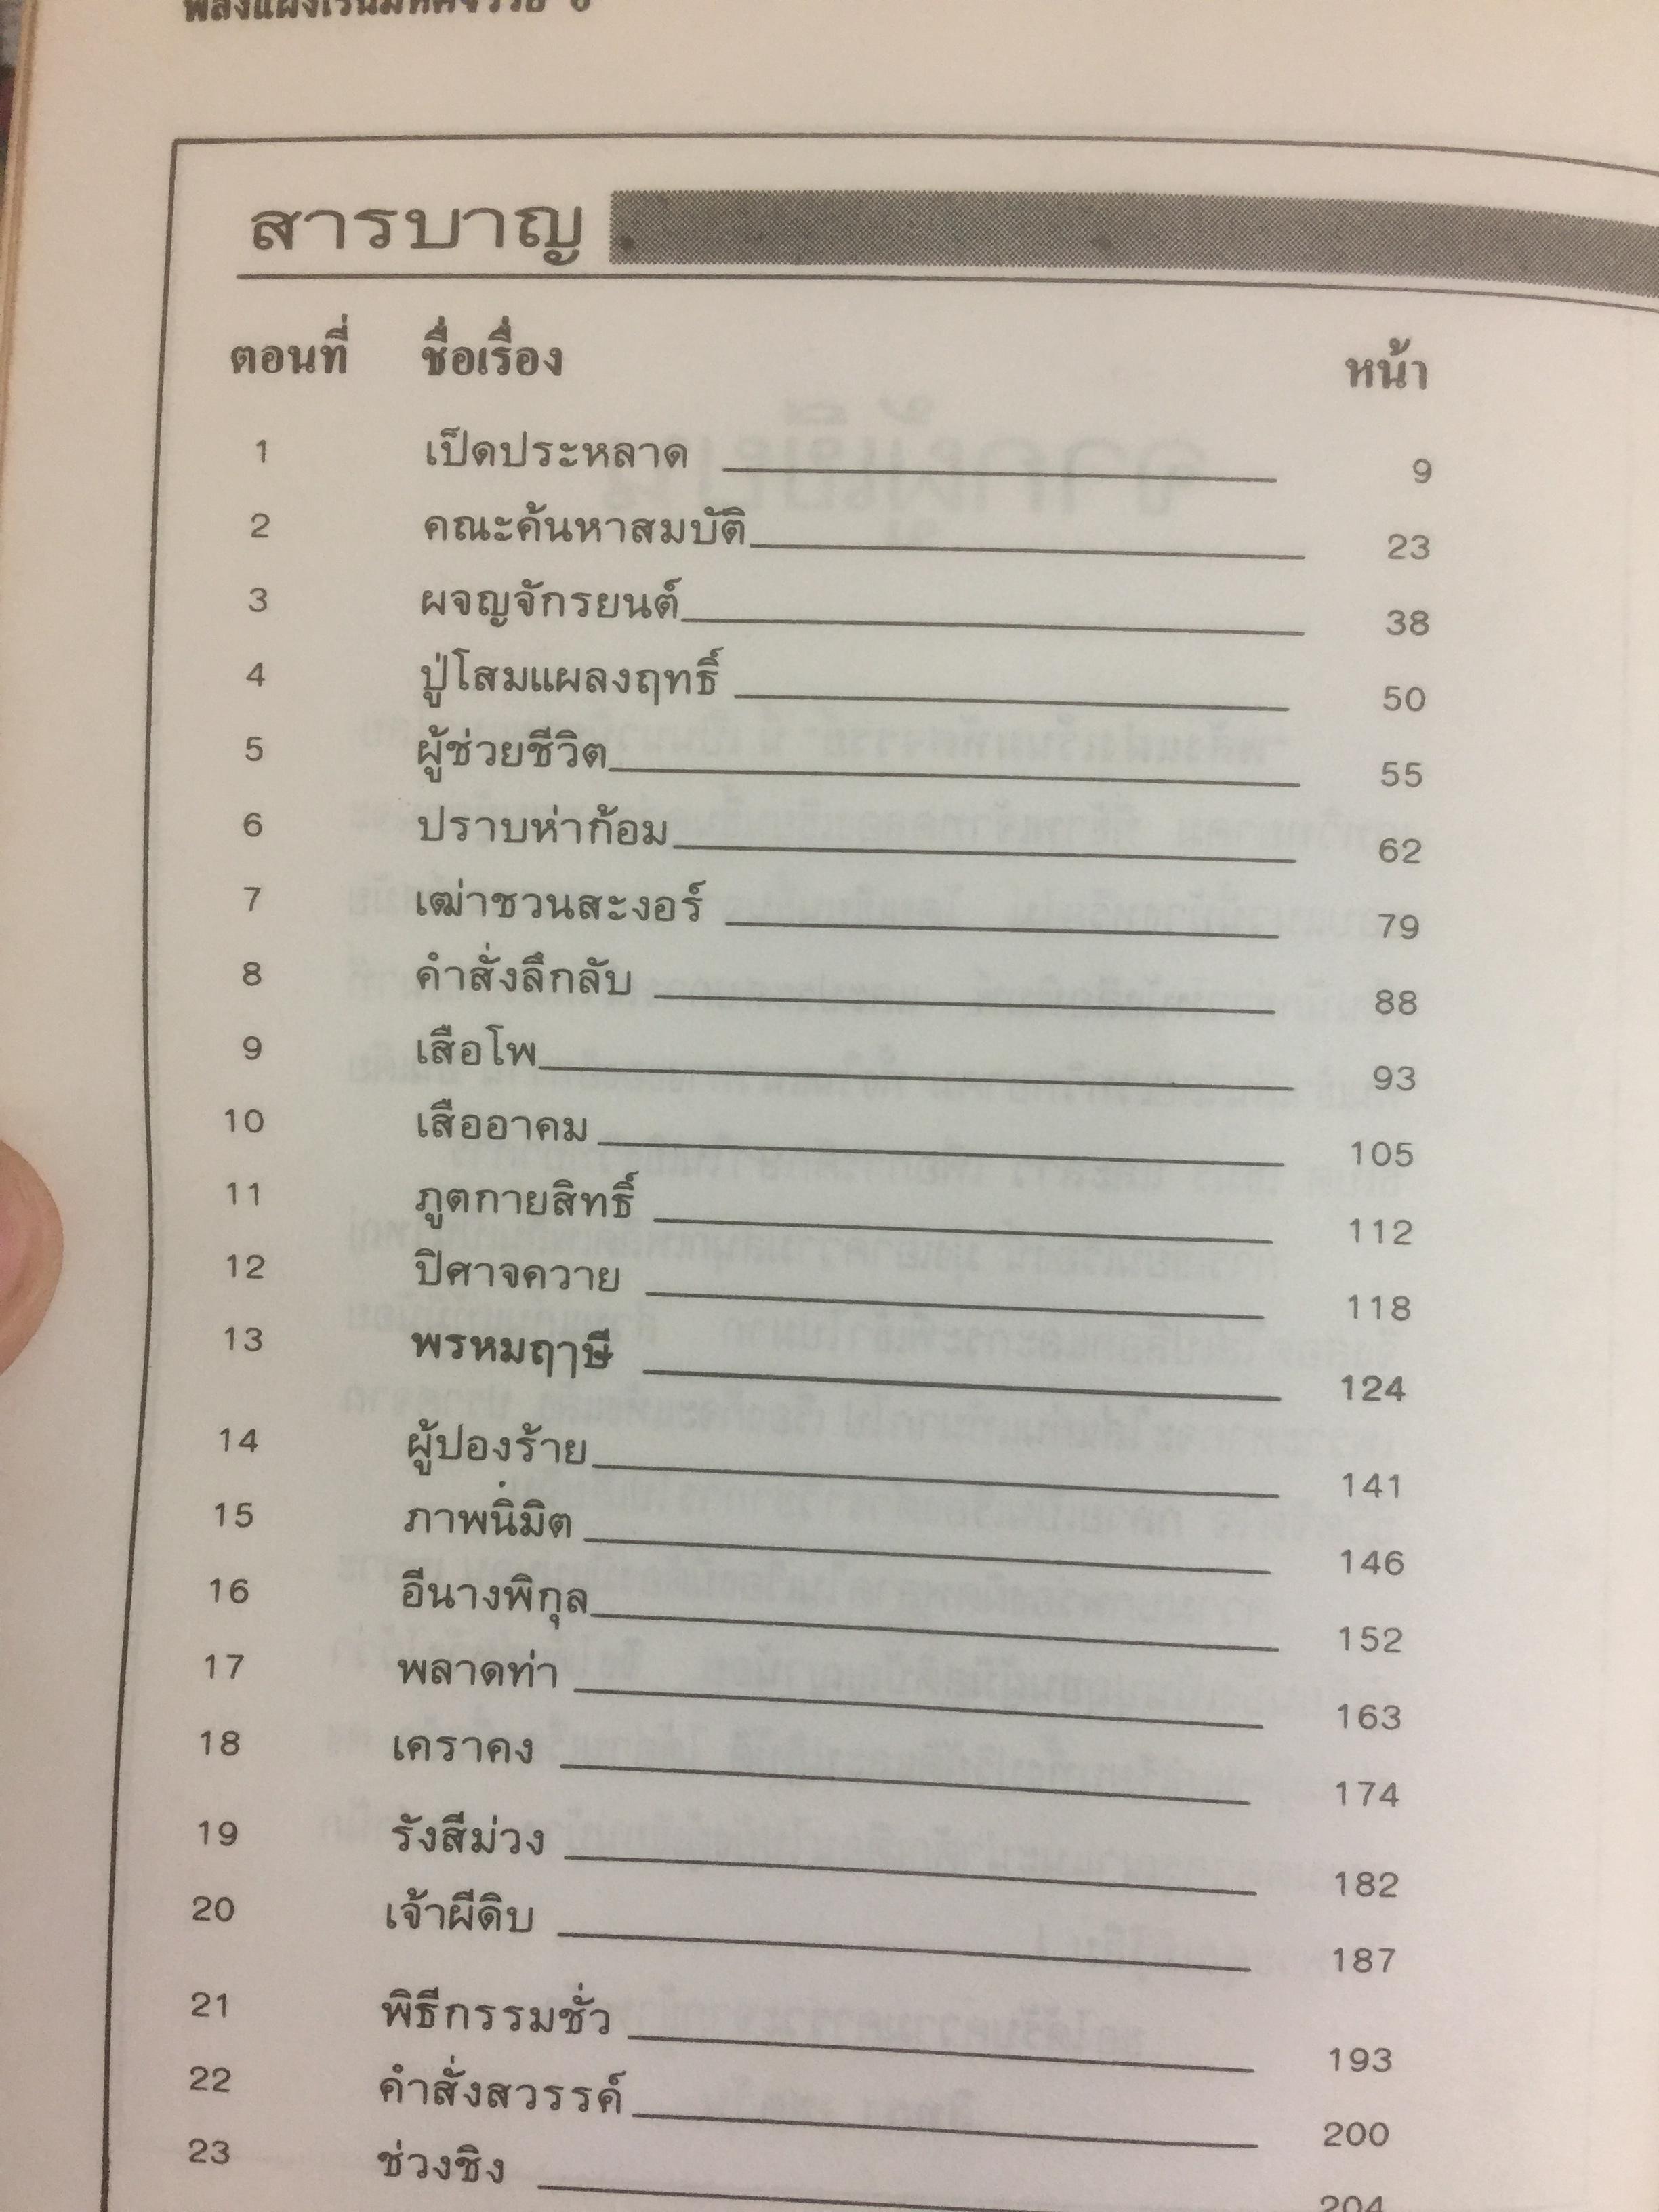 พลังแฝงเร้นมหัศจรรย์ 6
สารบาญ
ตอนที่ ชื่อเรื่อง หน้า
1 เป็ดประหลาด 9
2 คณะค้นหาสมบัติ 23
3 ผจญจักรยนต์ 38
4 ปู่โสมแผลงฤทธิ์ 50
5 ผู้ช่วยชีวิต 55
6 ปราบห่าก้อม 62
7 เฒ่าชวนสะงอร์ 79
8 คำสั่งลึกลับ 88
9 เสือโพ 93
10 เสืออาคม 105
11 ภูตกายสิทธิ์ 112
12 ปิศาจควาย 118
13 พรหมฤาษี 124
14 ผู้ปองร้าย 141
15 ภาพนิ่มิต 146
16 อีนางพิกุล 152
17 พลาดท่า 163
18 เคราคง 174
19 รังสีม่วง 182
20 เจ้าผีดิบ 187
21 พิธีกรรมชั่ว 193
22 คำสั่งสวรรค์ 200
23 ช่วงชิง 204